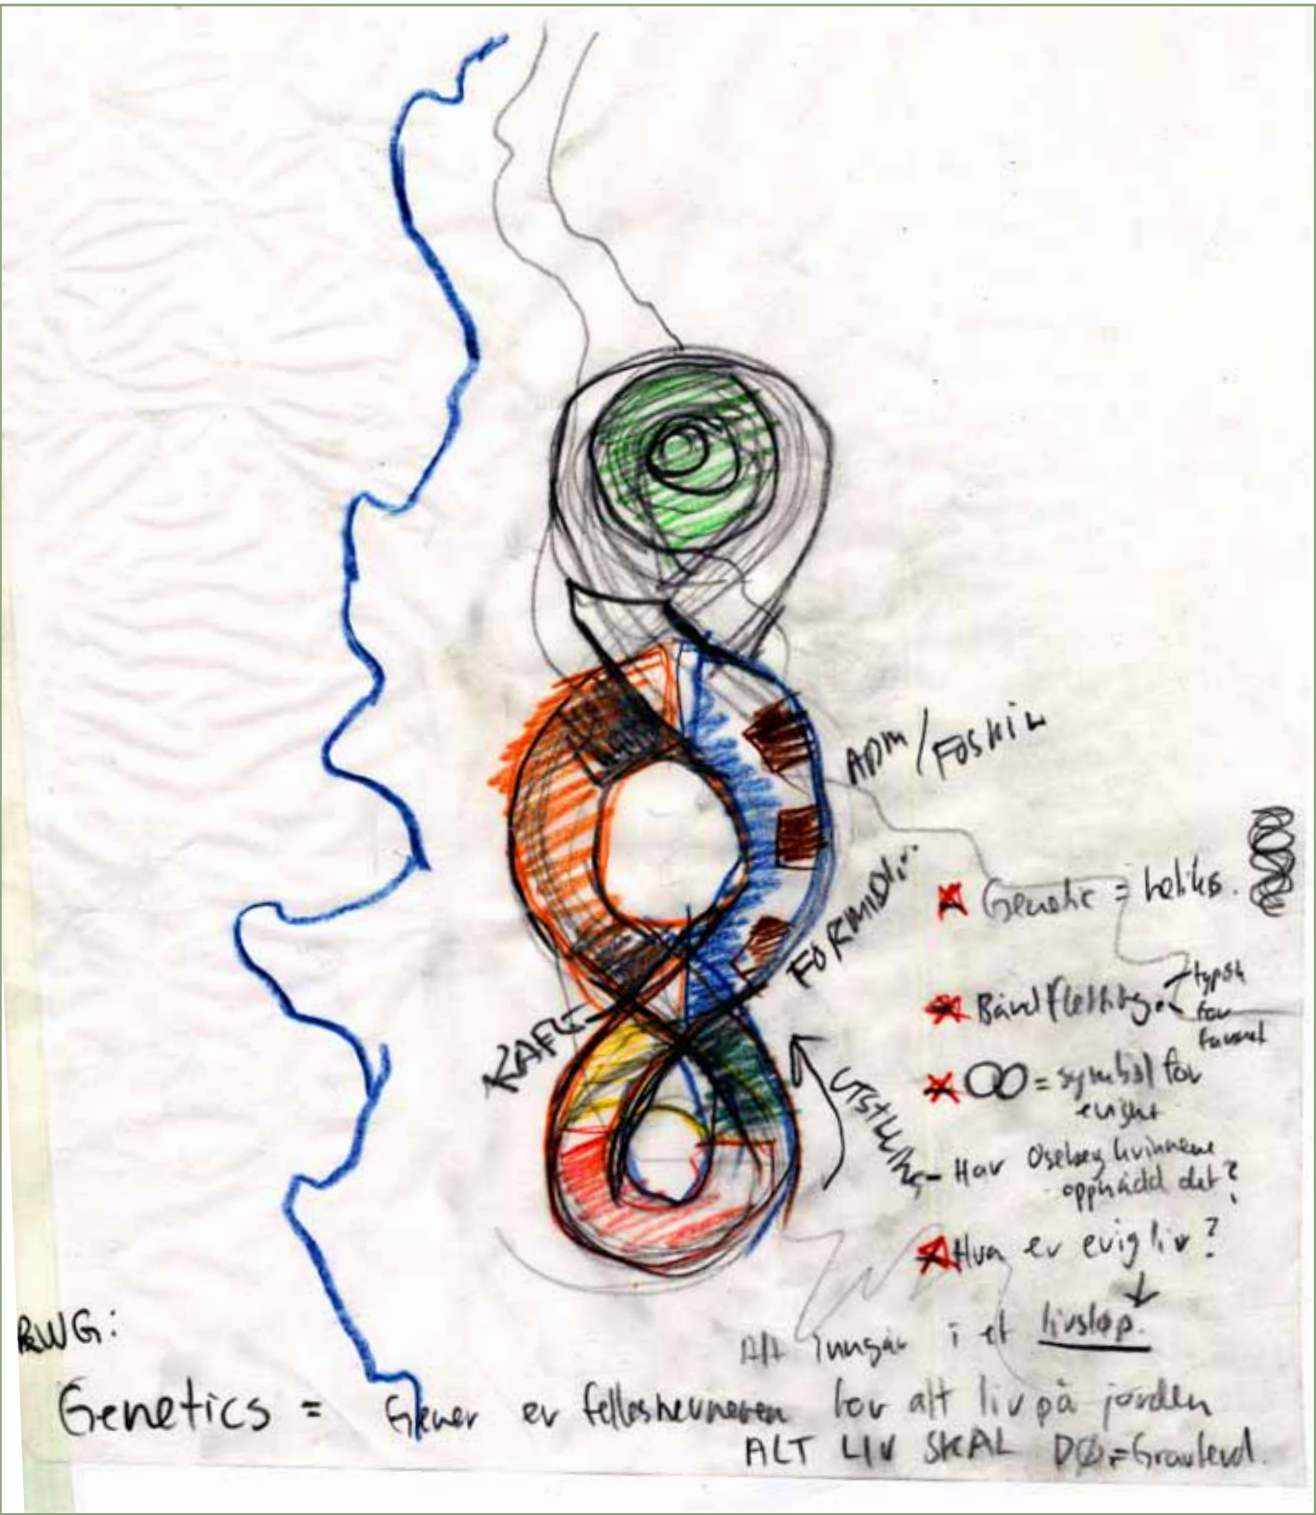 ADM/FOSKIN
FORMIDL..
KAFE
UTSTILLING
Genetic = heliks.
Båndfletting
typisk
for
funnet
∞ = symbol for
evighet
- Har Oseberg kvinnene
oppnådd det?
Hva er evig liv?
Alt inngår i et livsløp.
Genetics = Gener er fellesnevneren for alt liv på jorden
ALT LIV SKAL DØ = Gravferd.